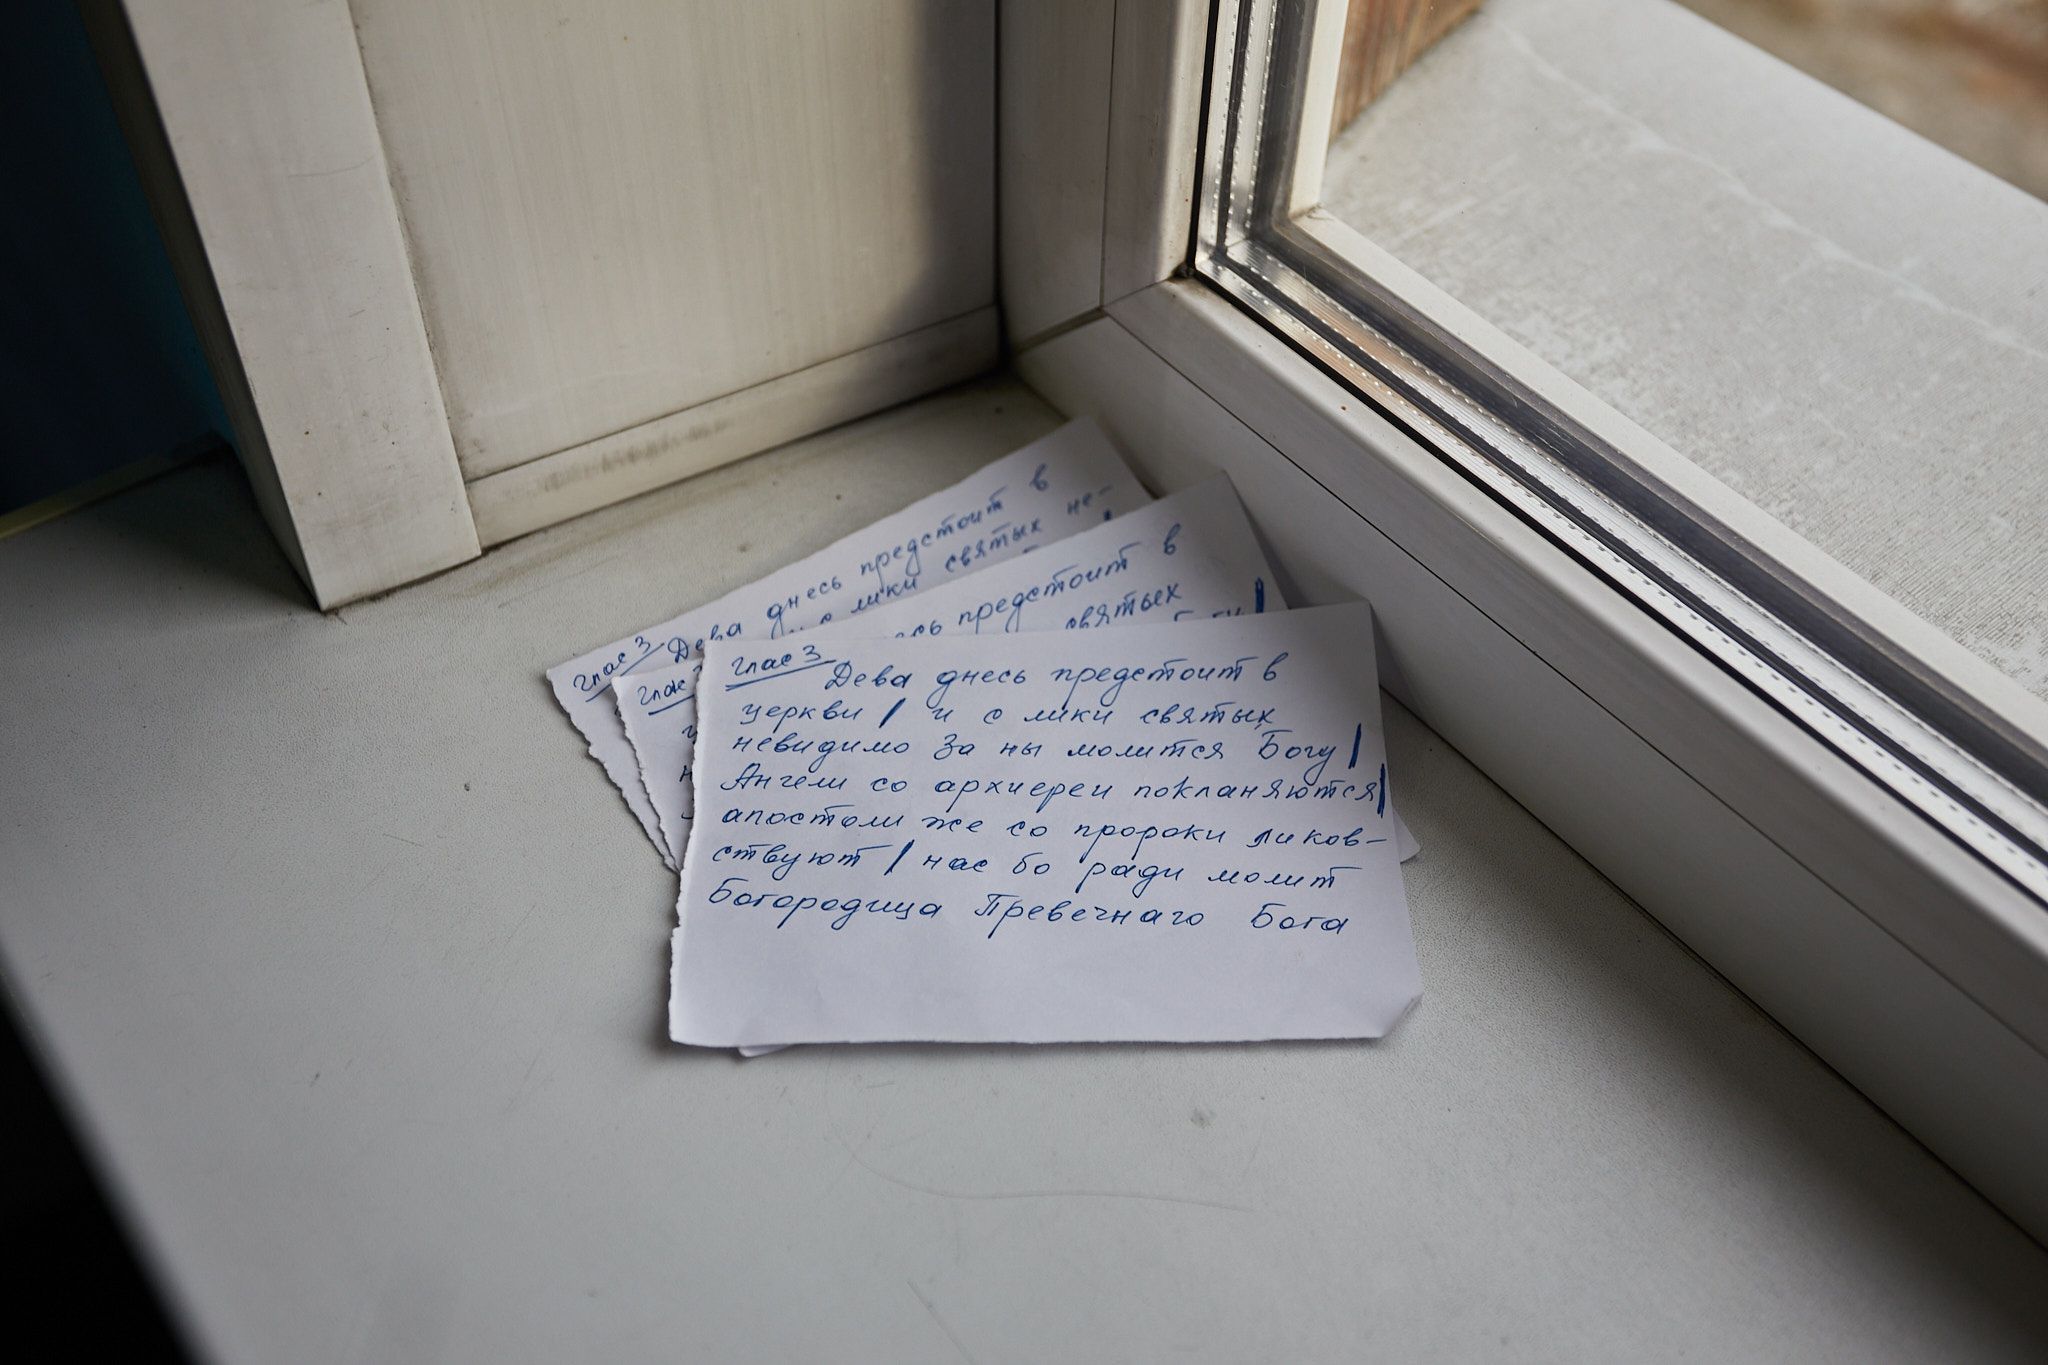 глас 3
Дева днесь предстоит в
с лики святых не-
глас
предстоит в
святых
глас 3
Дева днесь предстоит в
церкви / и с лики святых
невидимо за ны молится Богу /
Ангели со архиереи покланяются /
апостоли же со пророки ликов-
ствуют / нас бо ради молит
Богородица Превечнаго Бога